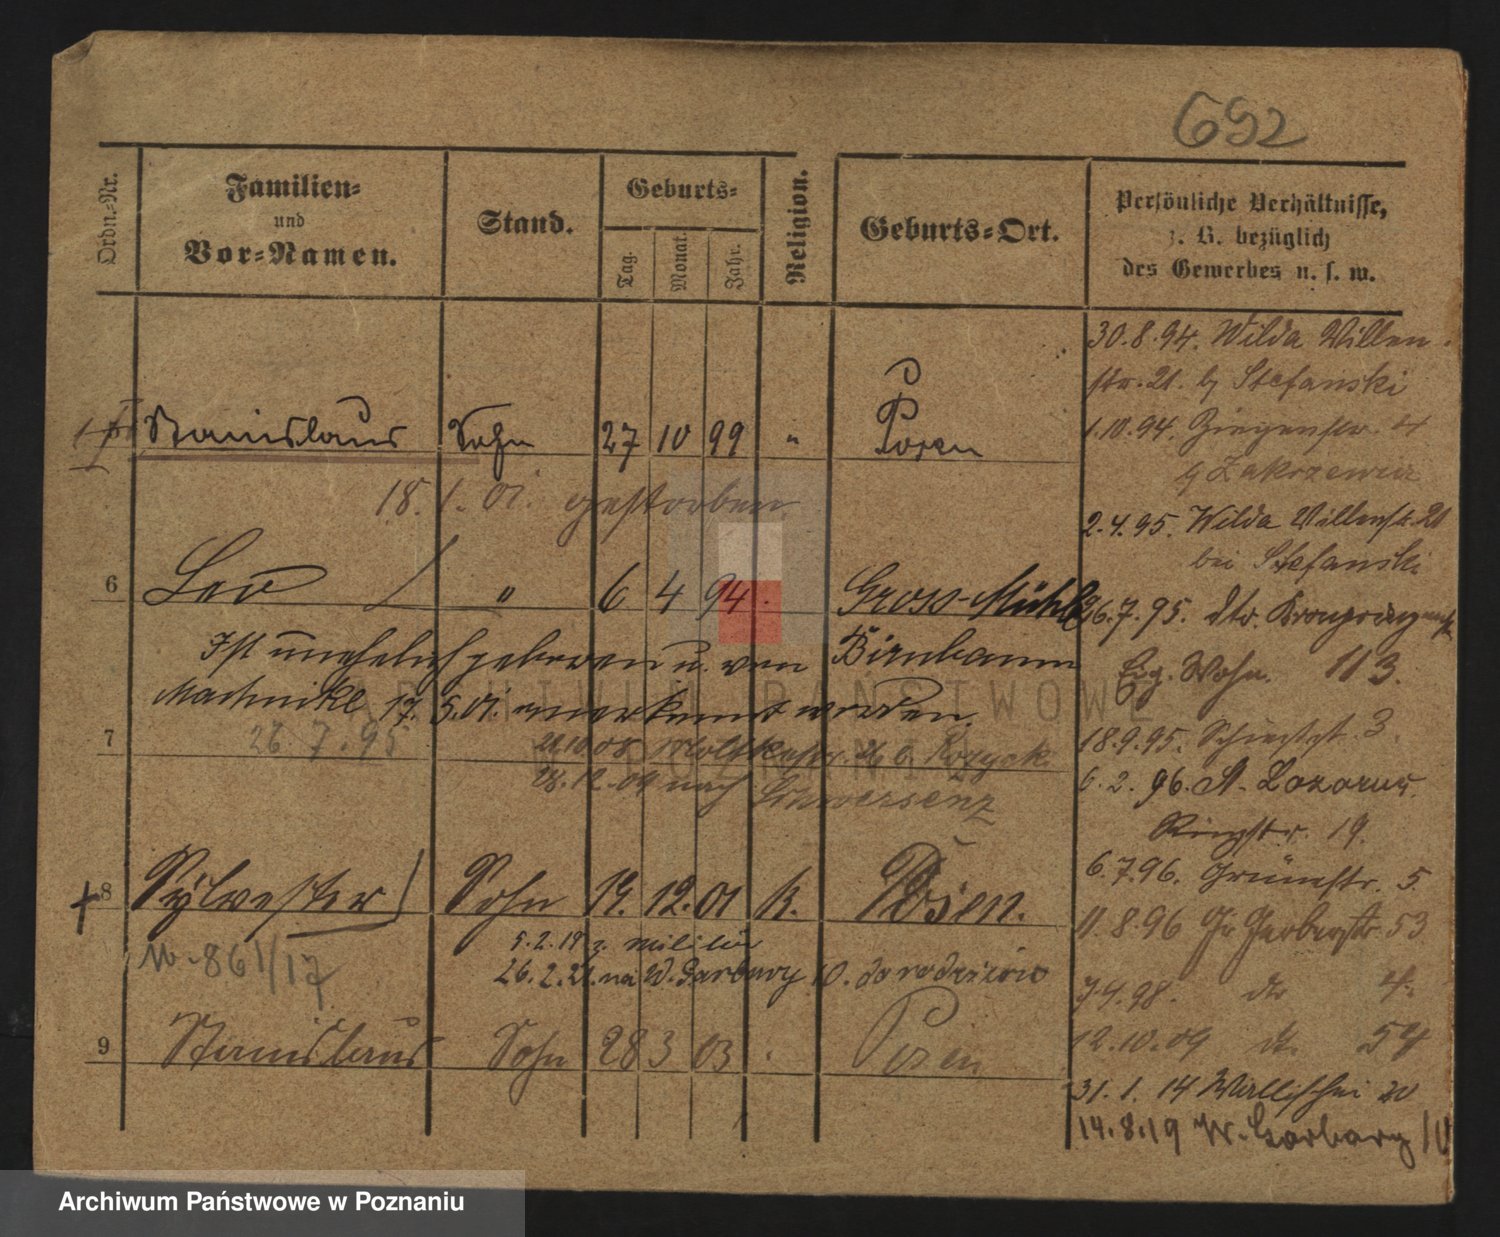 692
Ordn.-Nr.
Familien-
und
Vor-Namen.
Stand.
Geburts-
Tag.
Monat.
Jahr.
Religion.
Geburts-Ort.
Persönliche Verhältnisse,
z. B. bezüglich
des Gewerbes u. s. w.
Stanislaus Sohn 27 10 99 " Posen
18. 1. 01. gestorben
6 Leo " 6 4 94 Gross-Mühle
Ist unehelich geboren u. von Birnbaum
Machnikl 17. 5. 01. anerkannt worden.
7 26. 7. 95
28.12.09 nach Schwersenz
8 Sylvester Sohn 19. 12. 01 k. Posen.
5.2.19 z. Militär
26.2.21. na W. Garbary 10. do rodziców
9 Stanislaus Sohn 28 3 03 Posen
30.8.94. Wilda Villen
str. 21. b/ Stefanski
1.10.94. Ziegenstr.
2.4.95. Wilda Villenstr. 21
bei Stefanski
26.7.95. Kronprinzenstr
Eig. Wohn. 113.
18.9.95. 3.
6.2.96. St. Lazarus.
Ringstr. 19.
6.7.96. Grünestr. 5.
11.8.96 Gr Gerberstr. 53
7.4.98. do 4.
12.10.09 do. 54
31. 1. 14 Wallischei 20
14.8.19 W. Garbary 10
ARCHIWUM PAŃSTWOWE
W POZNANIU
Archiwum Państwowe w Poznaniu